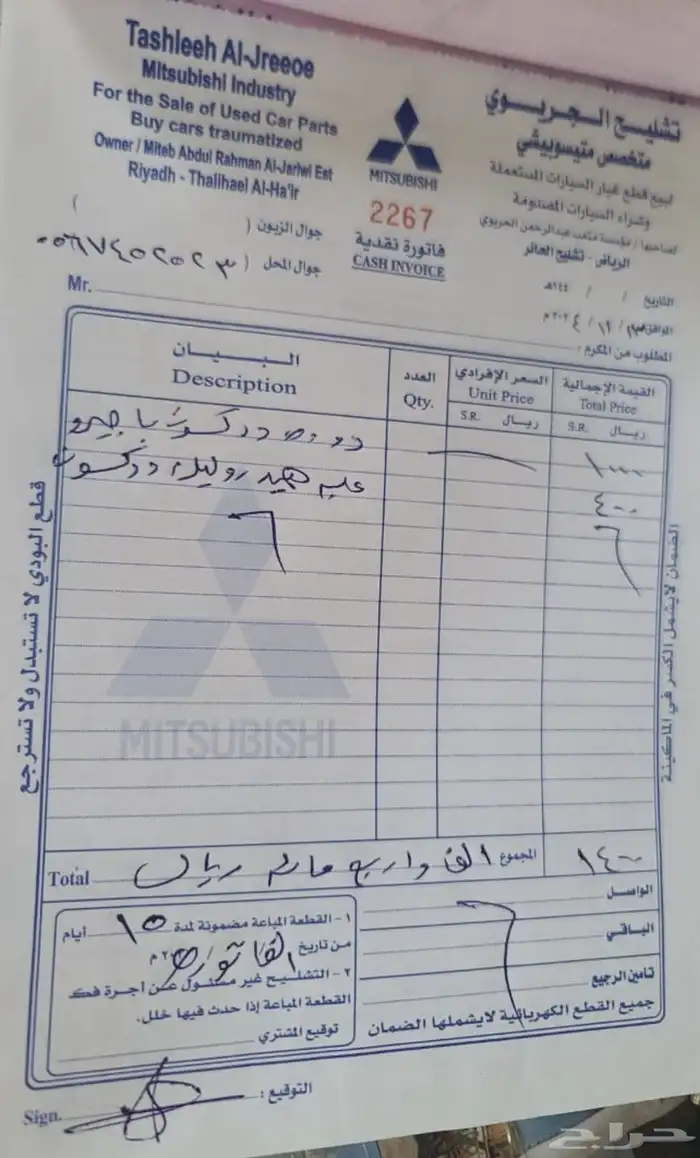 Tashleeh Al-Jreeoe
Mitsubishi Industry
For the Sale of Used Car Parts
Buy cars traumatized
Owner / Miteb Abdul Rahman Al-Jariwi Est
Riyadh - Thalihael Al-Ha'ir
MITSUBISHI
2267
فاتورة نقدية
CASH INVOICE
تشليح الجريوي
متخصص متيسوبيشي
لبيع قطع غيار السيارات المستعملة
وشراء السيارات المصدومة
لصاحبها / مؤسسة متعب عبدالرحمن الجريوي
الرياض - تشليح الحائر
جوال الزبون ( )
جوال المحل ( ٠٥٦٧٤٥٢٥٢٣
التاريخ / / ١٤٤هـ
الموافق / ١٢ / ٢٠٢٤م
Mr.
المطلوب من المكرم :
البـيـــان
Description
العدد
Qty.
السعر الإفرادي
Unit Price
S.R. ريـال
القيمة الإجمالية
Total Price
S.R. ريـال
دركسون باجيرو
١٠٠٠
علبه هيدروليك دركسون
٤٠٠
MITSUBISHI
قطع البودي لا تستبدل ولا تسترجع
الضمان لايشمل الكسر في الماكينة
Total المجموع الف واربع مائه ريال
١٤٠٠
١- القطعة المباعة مضمونة لمدة ١٥ أيام
من تاريخ الفاتوره ٢٠م
٢- التشليح غير مسئول عن أجرة فك
القطعة المباعة إذا حدث فيها خلل.
توقيع المشتري
الواصل
الباقي
تامين الرجيع
جميع القطع الكهربائية لايشملها الضمان
Sign. التوقيع :
حراج